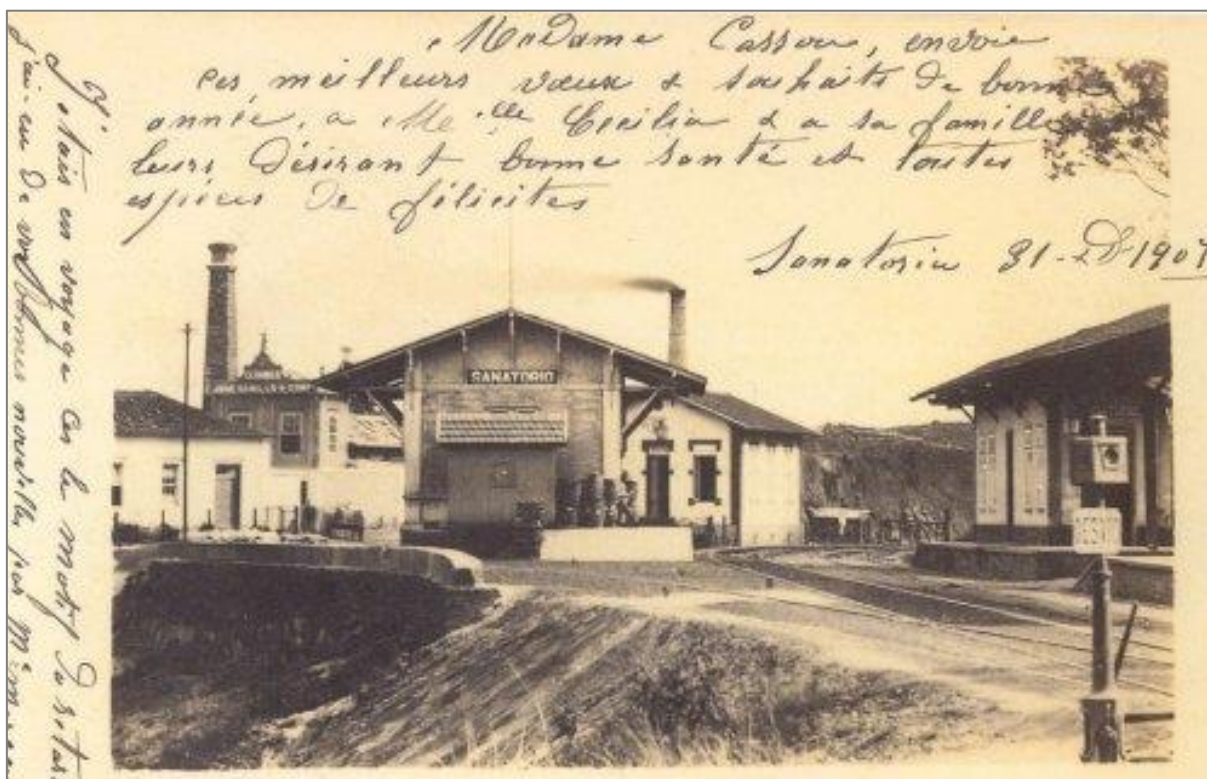 Madame Cassou, envoie
ces meilleurs vœux & souhaits de bonne
année, a Melle Cecilia & a sa famille
leurs désirant bonne santé et toutes
espèces de félicites
Sanatorio 31-D-1907
J'étais en voyage ces le motif du retard
j'ai eu de vos bonnes nouvelles par
SANATORIO